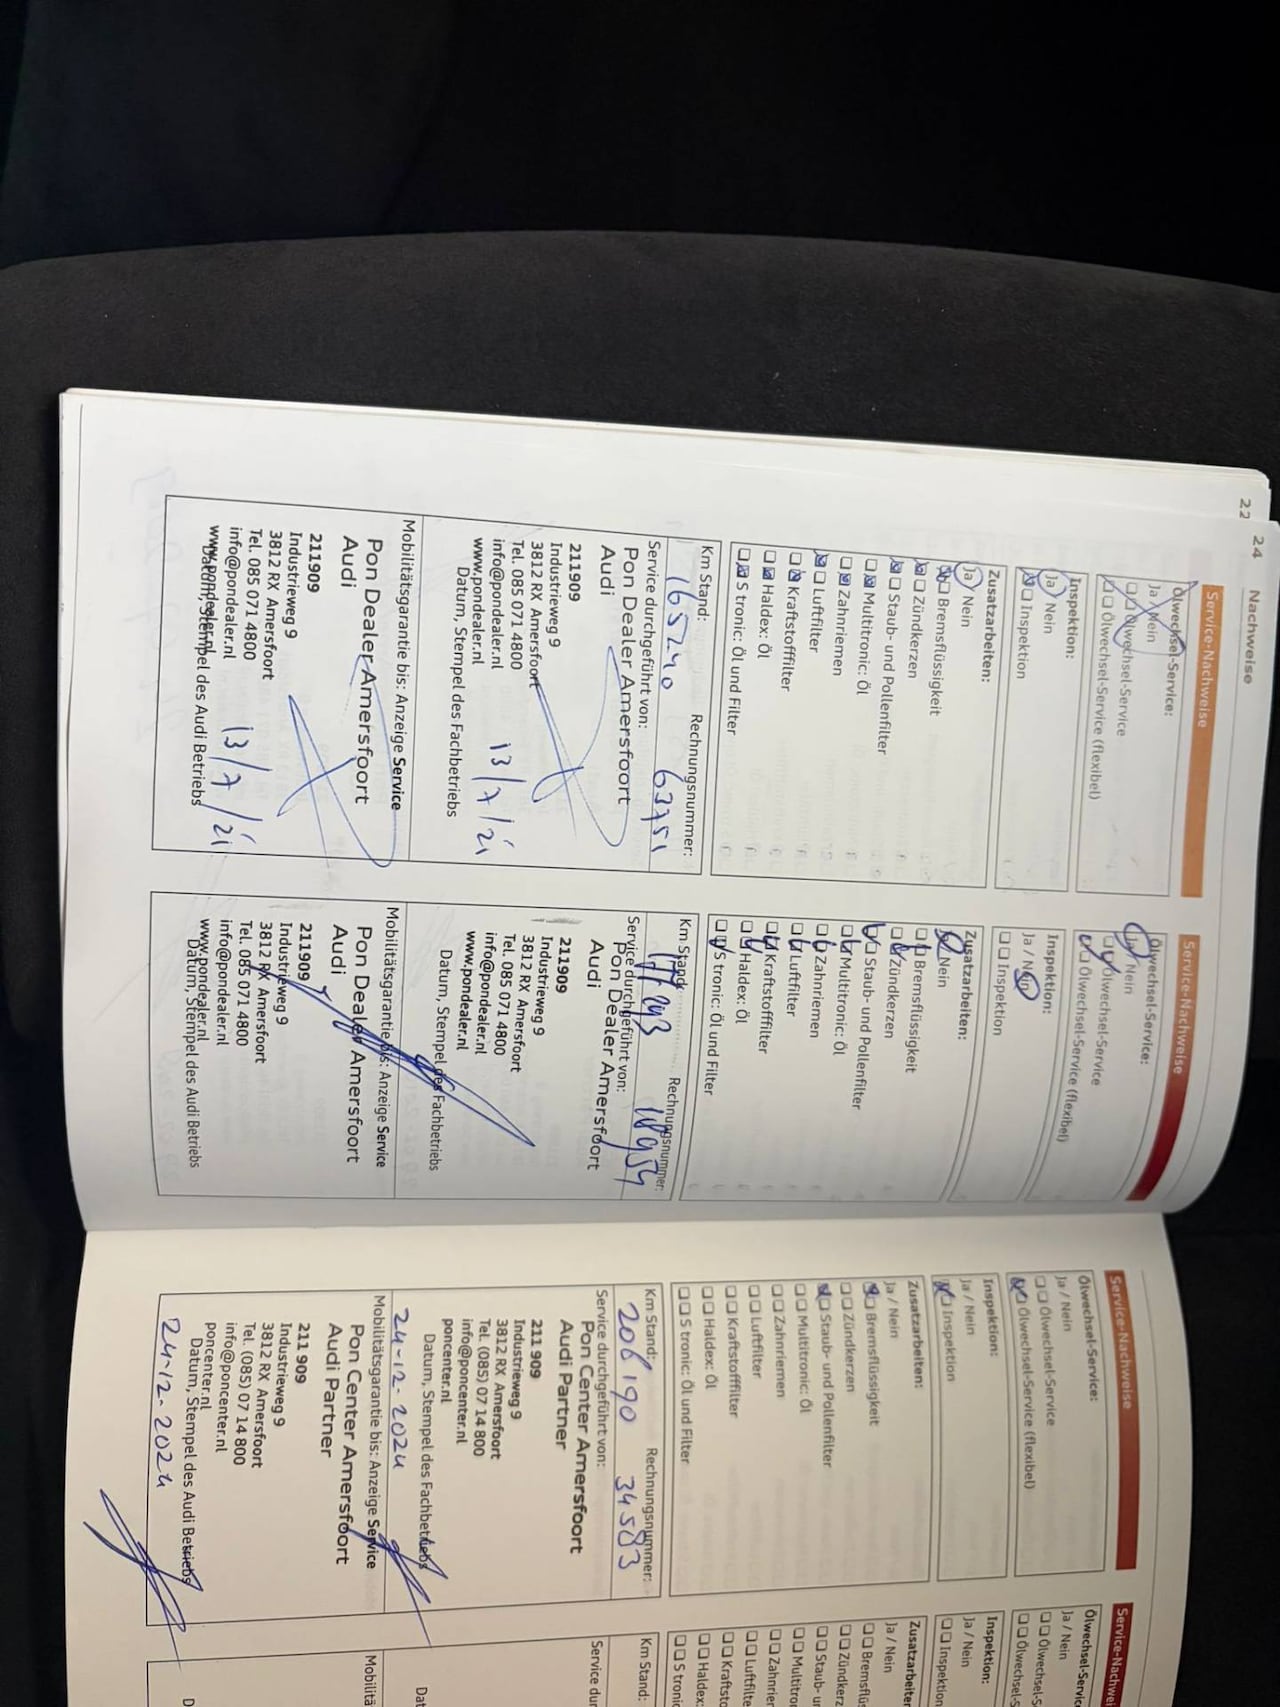 22
24 Nachweise
Service-Nachweise
Ölwechsel-Service:
Ja / Nein
Ölwechsel-Service
Ölwechsel-Service (flexibel)
Inspektion:
Ja / Nein
Inspektion
Zusatzarbeiten:
Ja / Nein
Bremsflüssigkeit
Zündkerzen
Staub- und Pollenfilter
Multitronic: Öl
Zahnriemen
Luftfilter
Kraftstofffilter
Haldex: Öl
S tronic: Öl und Filter
Km Stand: Rechnungsnummer:
165240 63751
Service durchgeführt von:
Pon Dealer Amersfoort
Audi
211909
Industrieweg 9
3812 RX Amersfoort
Tel. 085 071 4800
info@pondealer.nl
www.pondealer.nl
13/7/21
Datum, Stempel des Fachbetriebs
Mobilitätsgarantie bis: Anzeige Service
Pon Dealer Amersfoort
Audi
211909
Industrieweg 9
3812 RX Amersfoort
Tel. 085 071 4800
info@pondealer.nl
www.pondealer.nl
13/7/21
Datum, Stempel des Audi Betriebs
Service-Nachweise
Ölwechsel-Service:
Ja / Nein
Ölwechsel-Service
Ölwechsel-Service (flexibel)
Inspektion:
Ja / Nein
Inspektion
Zusatzarbeiten:
Ja / Nein
Bremsflüssigkeit
Zündkerzen
Staub- und Pollenfilter
Multitronic: Öl
Zahnriemen
Luftfilter
Kraftstofffilter
Haldex: Öl
S tronic: Öl und Filter
Km Stand: Rechnungsnummer:
Service durchgeführt von:
Pon Dealer Amersfoort
Audi
211909
Industrieweg 9
3812 RX Amersfoort
Tel. 085 071 4800
info@pondealer.nl
www.pondealer.nl
Datum, Stempel des Fachbetriebs
Mobilitätsgarantie bis: Anzeige Service
Pon Dealer Amersfoort
Audi
211909
Industrieweg 9
3812 RX Amersfoort
Tel. 085 071 4800
info@pondealer.nl
www.pondealer.nl
Datum, Stempel des Audi Betriebs
Service-Nachweise
Ölwechsel-Service:
Ja / Nein
Ölwechsel-Service
Ölwechsel-Service (flexibel)
Inspektion:
Ja / Nein
Inspektion
Zusatzarbeiten:
Ja / Nein
Bremsflüssigkeit
Zündkerzen
Staub- und Pollenfilter
Multitronic: Öl
Zahnriemen
Luftfilter
Kraftstofffilter
Haldex: Öl
S tronic: Öl und Filter
Km Stand: Rechnungsnummer:
206190 34583
Service durchgeführt von:
Pon Center Amersfoort
Audi Partner
211 909
Industrieweg 9
3812 RX Amersfoort
Tel. (085) 07 14 800
info@poncenter.nl
poncenter.nl
Datum, Stempel des Fachbetriebs
24-12-2024
Mobilitätsgarantie bis: Anzeige Service
Pon Center Amersfoort
Audi Partner
211 909
Industrieweg 9
3812 RX Amersfoort
Tel. (085) 07 14 800
info@poncenter.nl
poncenter.nl
Datum, Stempel des Audi Betriebs
24-12-2024
Service-Nachwei
Ölwechsel-Servic
Ja / Nein
Ölwechsel-S
Ölwechsel-S
Inspektion:
Ja / Nein
Inspektion
Zusatzarbeiter
Ja / Nein
Bremsflüs
Zündkerz
Staub- ur
Multitror
Zahnrier
Luftfilte
Kraftsto
Haldex:
S tronic
Km Stand:
Service dur
Dat
Mobilitä
D